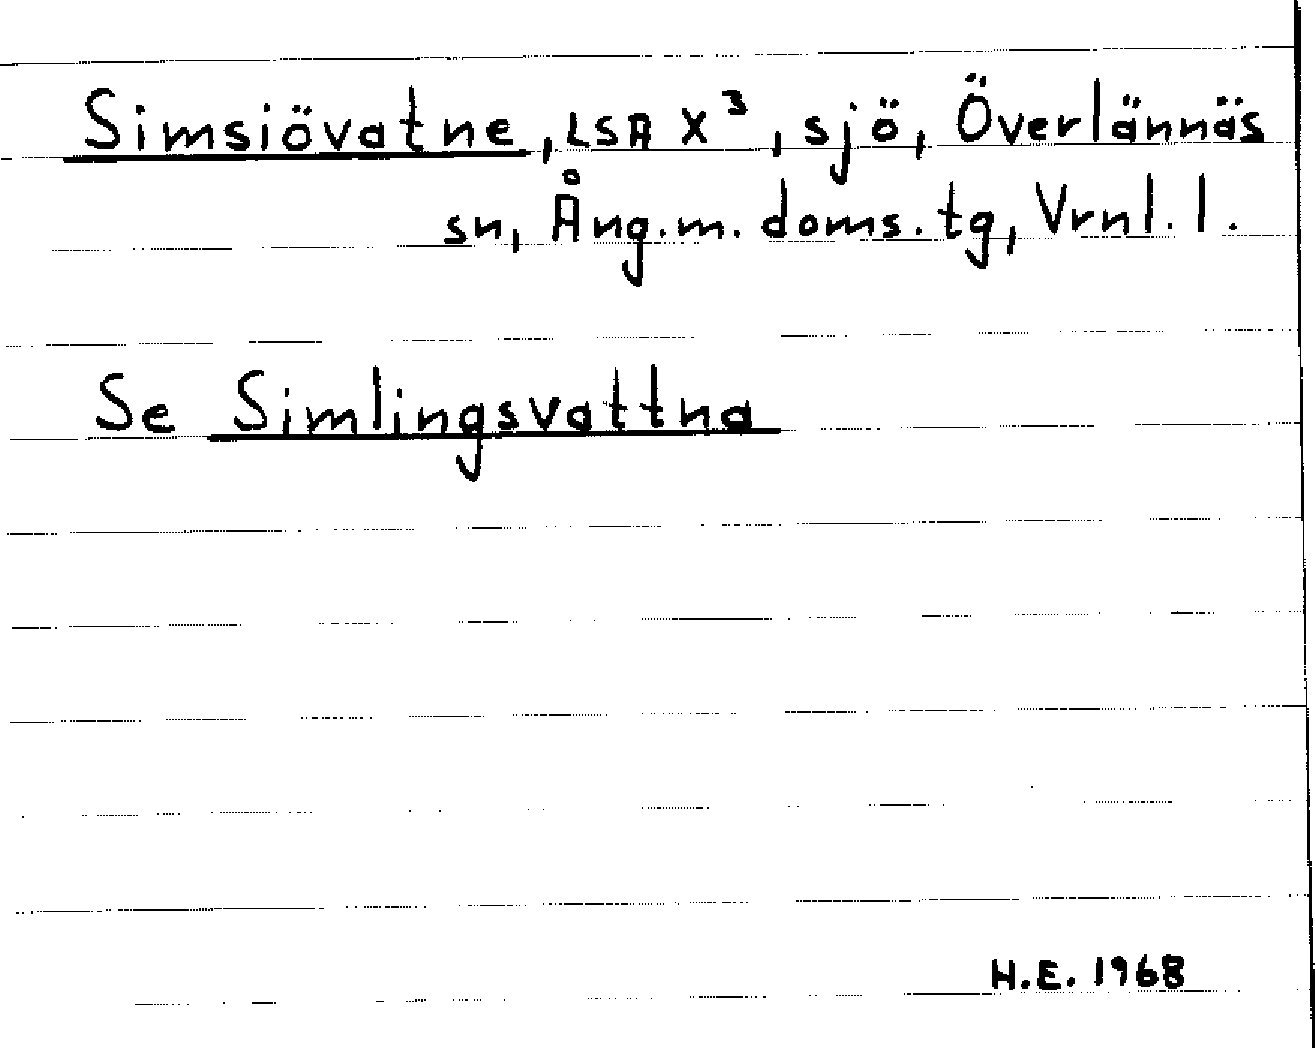 Simsiövatne, LSA X³, sjö, Överlännäs
sn, Ång.m. doms. tg, Vrnl. l.
Se Simlingsvattna
H.E. 1968